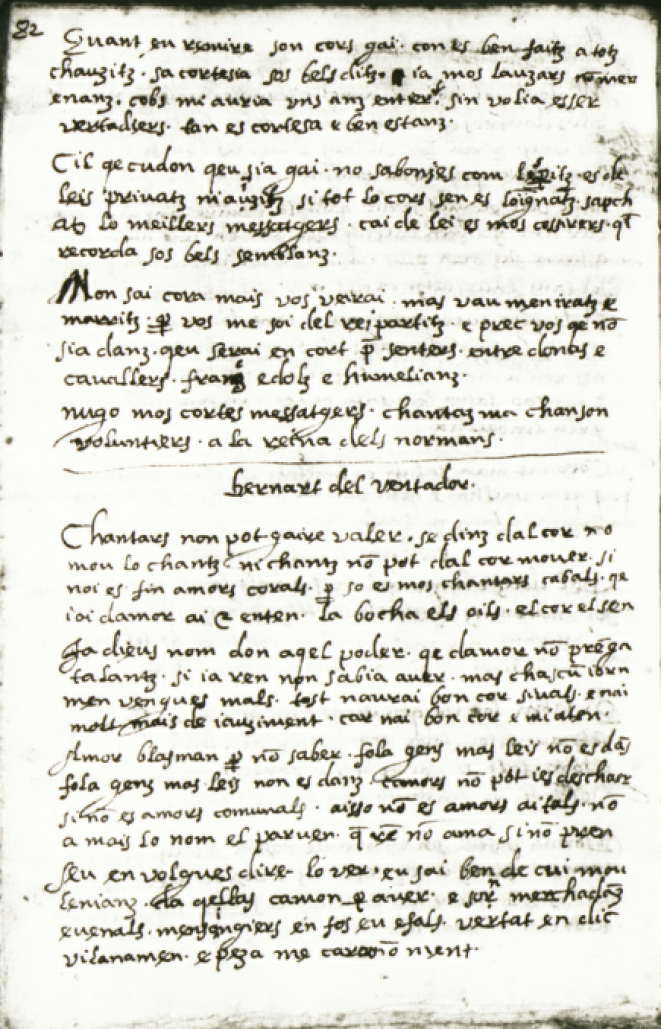 82
Quant eu remire son cors gai· con es ben faitz a totz
chauzitz· sa cortesia ses bels ditz· ia mos lauzars
enanz· cobs mi auria uns anz enter· sin volia esser
vertadiers· tan es cortesa e benestanz·
Cil qe cudon qeu sia gai· no sabon ies com es de
leis privatz si tot lo cors sen es loignatz sapch
atz lo meillers messatgers· cai de lei es mos cossirers· q̄
recorda sos bels semblanz·
Non sai cora mais vos veirai· mas vau men iratz e
marritz· p̄ vos me soi del rei partitz· e prec vos qe nō
sia danz· qeu serai en cort p̄senters· entre donas e
cavallers· francs e dolz e humelianz·
nugo mos cortes messatgers· chantaz ma chanson
voluntiers· a la reina dels normans·
bernart del ventador·
Chantars non pot gaire valer· se dinz dal cor no
mou lo chantz ni chantz nō pot dal cor mover· si
noi es fin amors corals· p̄ so es mos chantars cabals· qe
ioi damor ai et enten· la bocha els oils· el cor el sen
Ja dieus nom don aqel poder· qe damor nō prēga
talantz· si ia ren non sabia aver· mas chascū iorn
men vengues mals· tost naurai bon cor sivals· e nai
molt mais de iauziment· car nai bon cor e mi aten·
Amor blasman p̄ nō saber· fola gens mas leis nō es dāz
fola gens mas leis non es danz camors nō pot ies deschaer
si nō es amors comunals· aisso nō es amors aitals· nō
a mais lo nom el parven· q̄ rē nō ama si nō pren
Seu en volgues dire lo ver· eu sai ben de cui mou
lenianz· da qellas camon p̄ aver· e son merchadāz
evenals· mensongiers en fos eu e fals· vertat en dic
vilanamen· e peza me car nō ment·